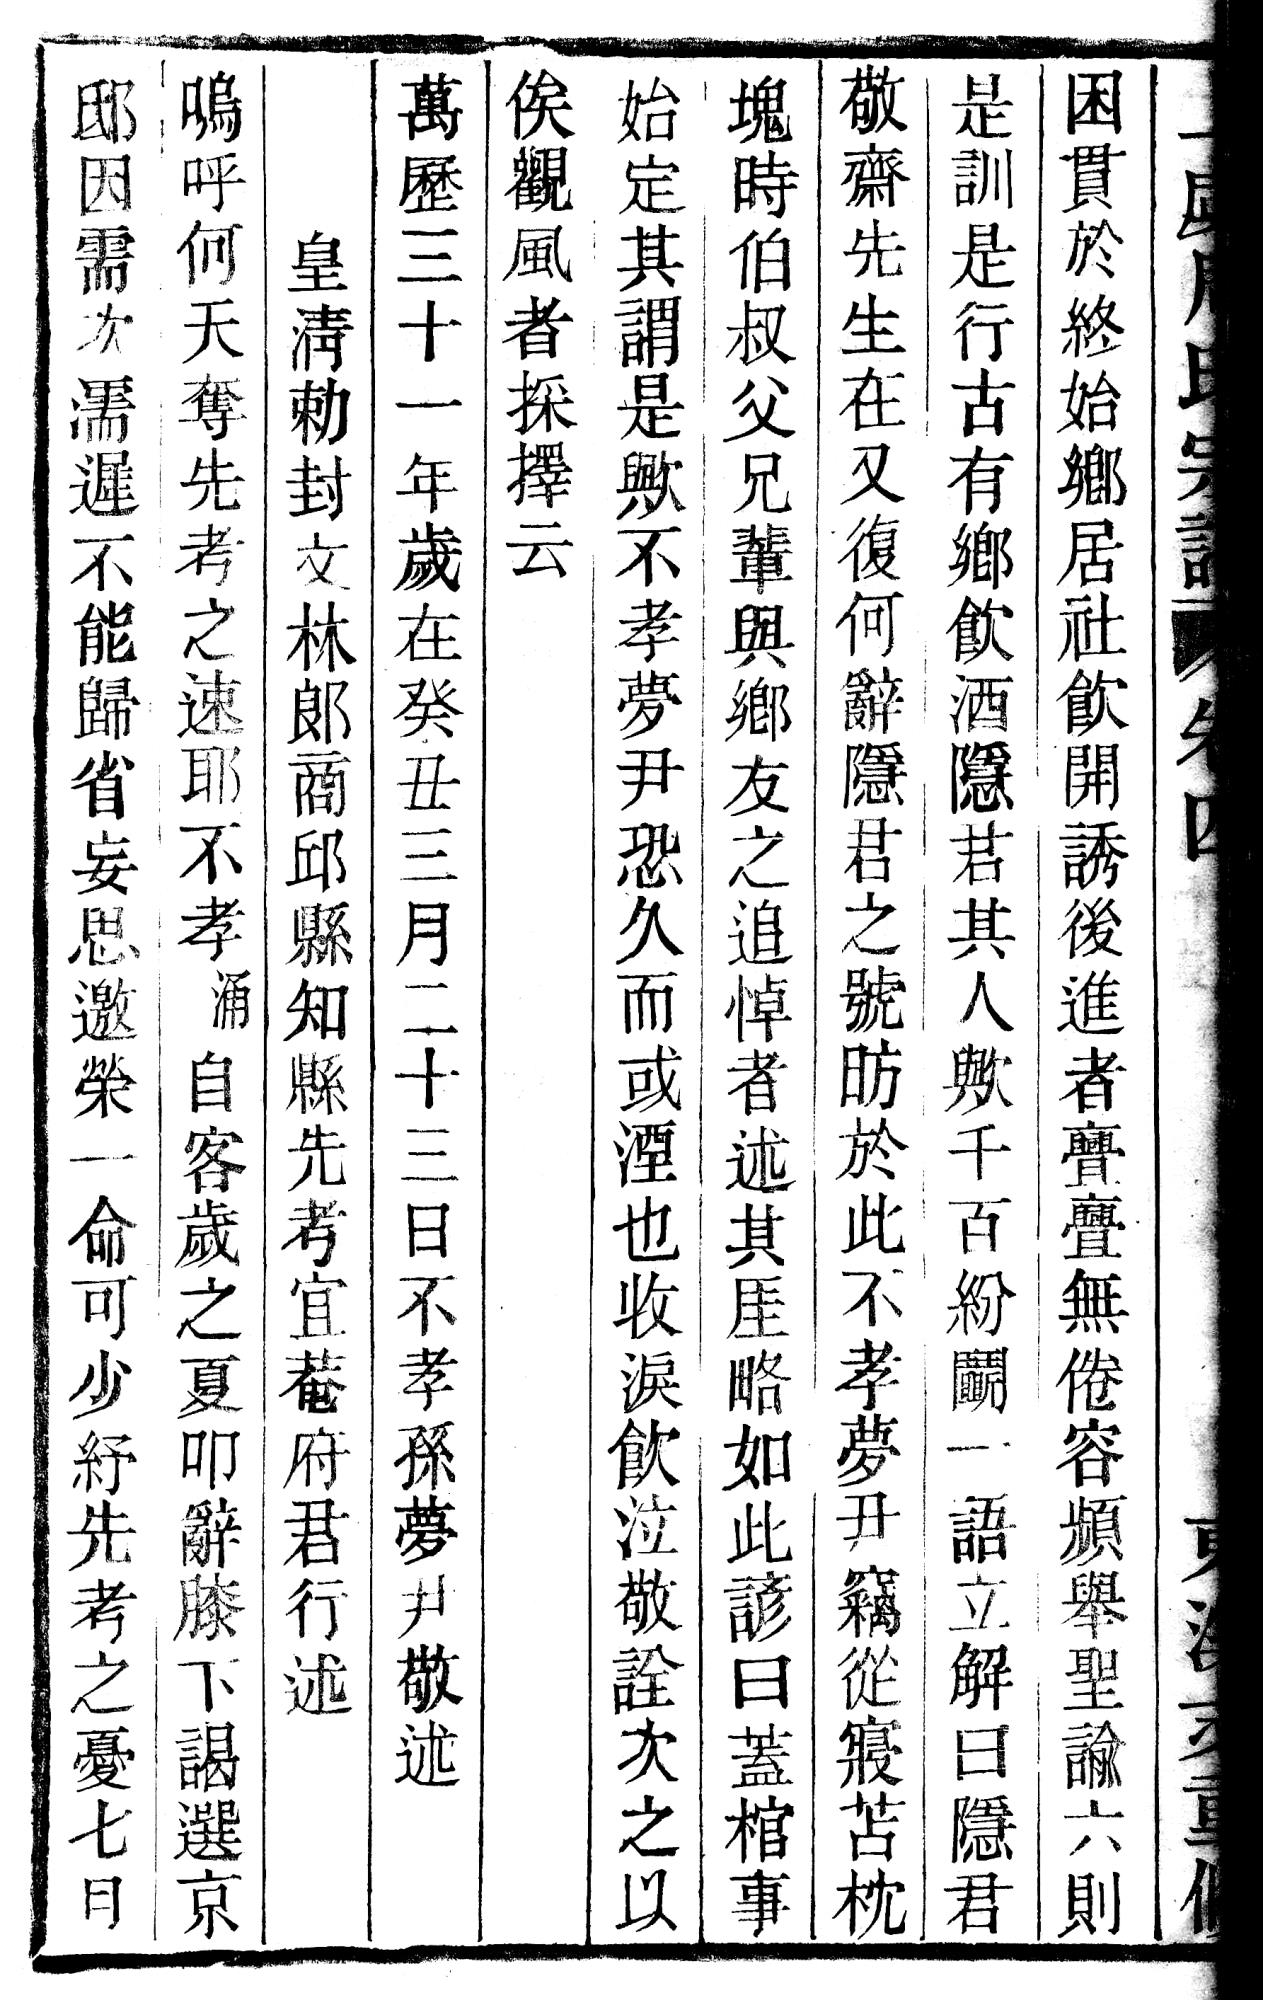 困貫於終始鄉居社飮開誘後進者亹亹無倦容頻舉聖諭六則
是訓是行古有鄉飮酒隱君其人歟千百紛鬬一語立解曰隱君
敬齋先生在又復何辭隱君之號昉於此不孝夢尹竊從寢苫枕
塊時伯叔父兄輩與鄉友之追悼者述其厓略如此諺曰蓋棺事
始定其謂是歟不孝夢尹恐久而或湮也收淚飮泣敬詮次之以
俟觀風者採擇云
萬歷三十一年歲在癸丑三月二十三日不孝孫夢尹敬述
皇淸勅封文林郞商邱縣知縣先考宜菴府君行述
嗚呼何天奪先考之速耶不孝涌自客歲之夏叩辭膝下謁選京
邸因需次濡遲不能歸省妄思邀榮一命可少紓先考之憂七日